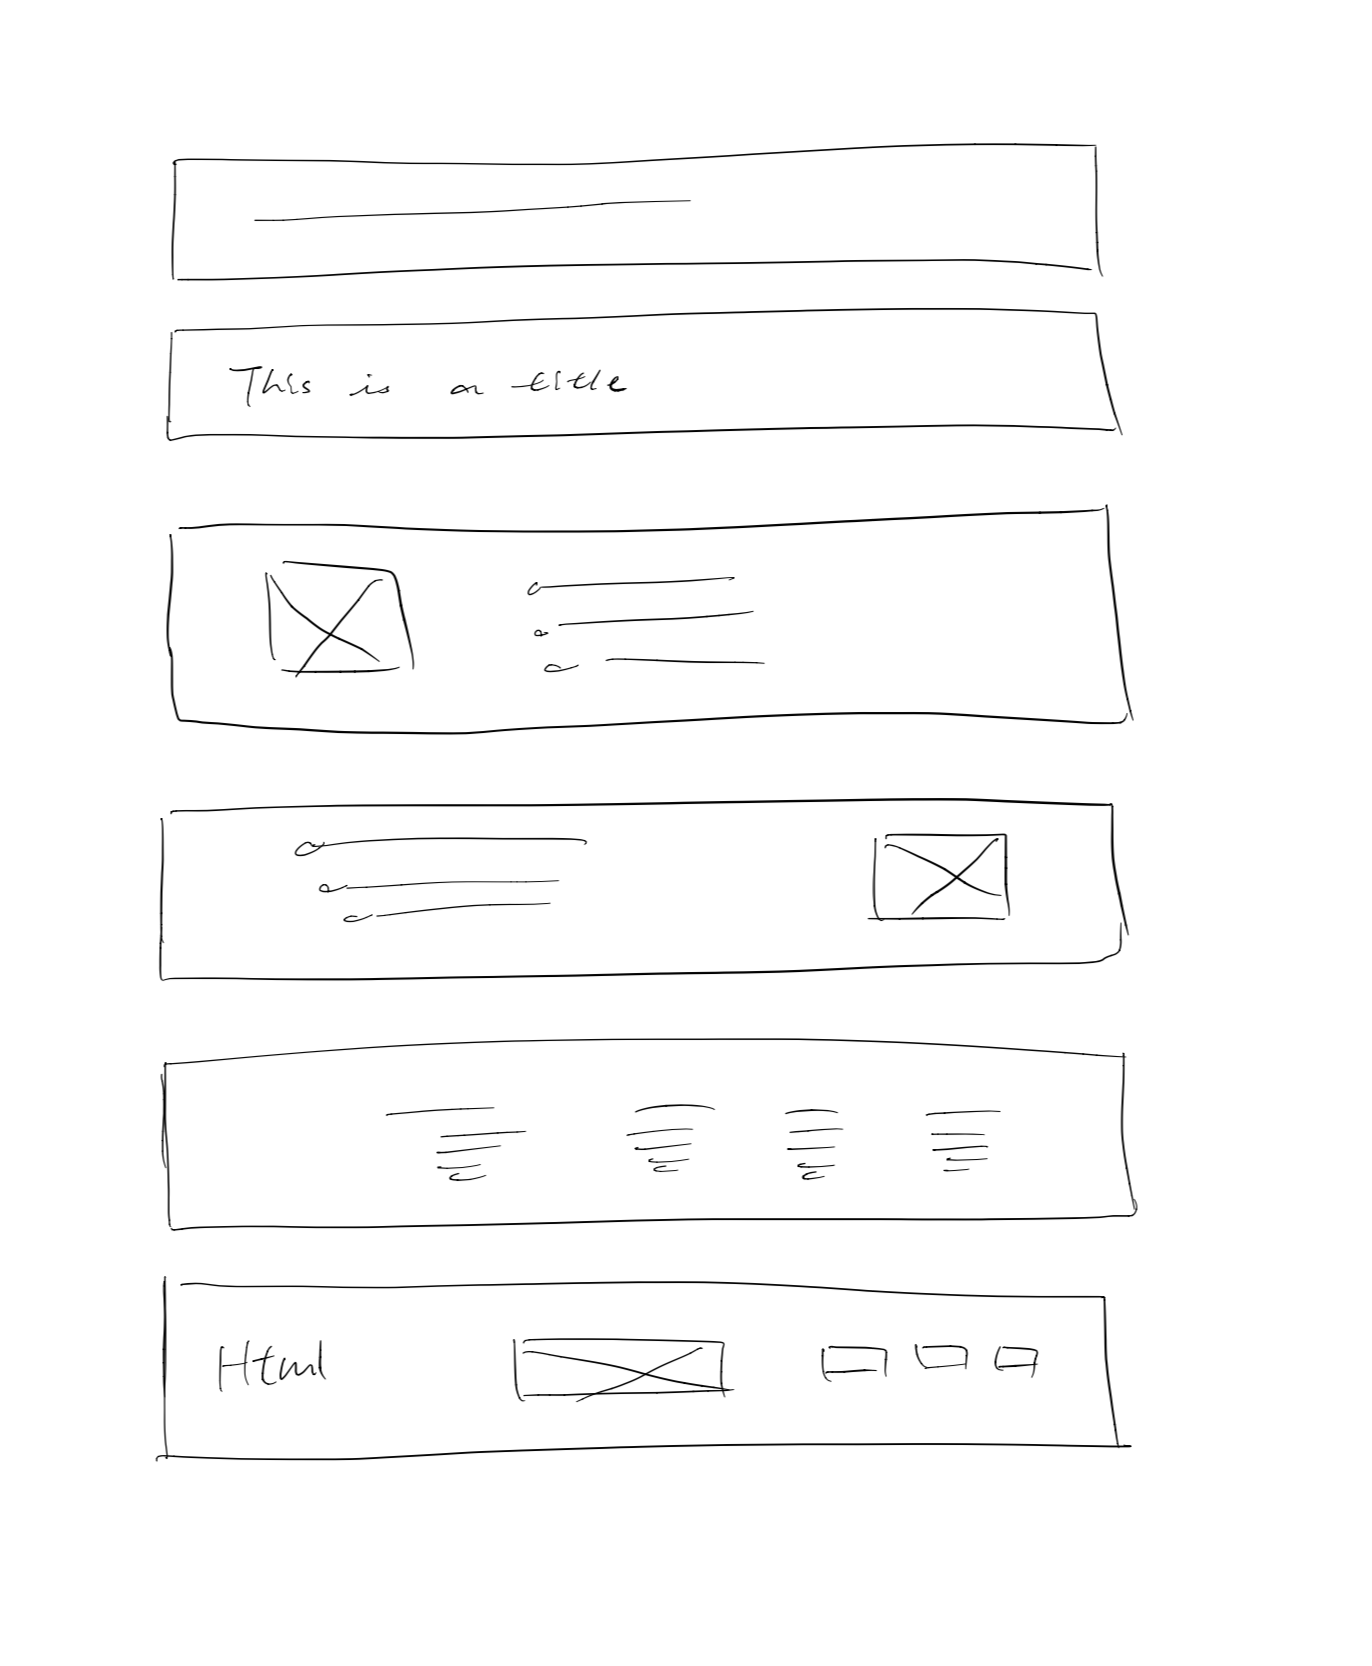 This is a title
Html